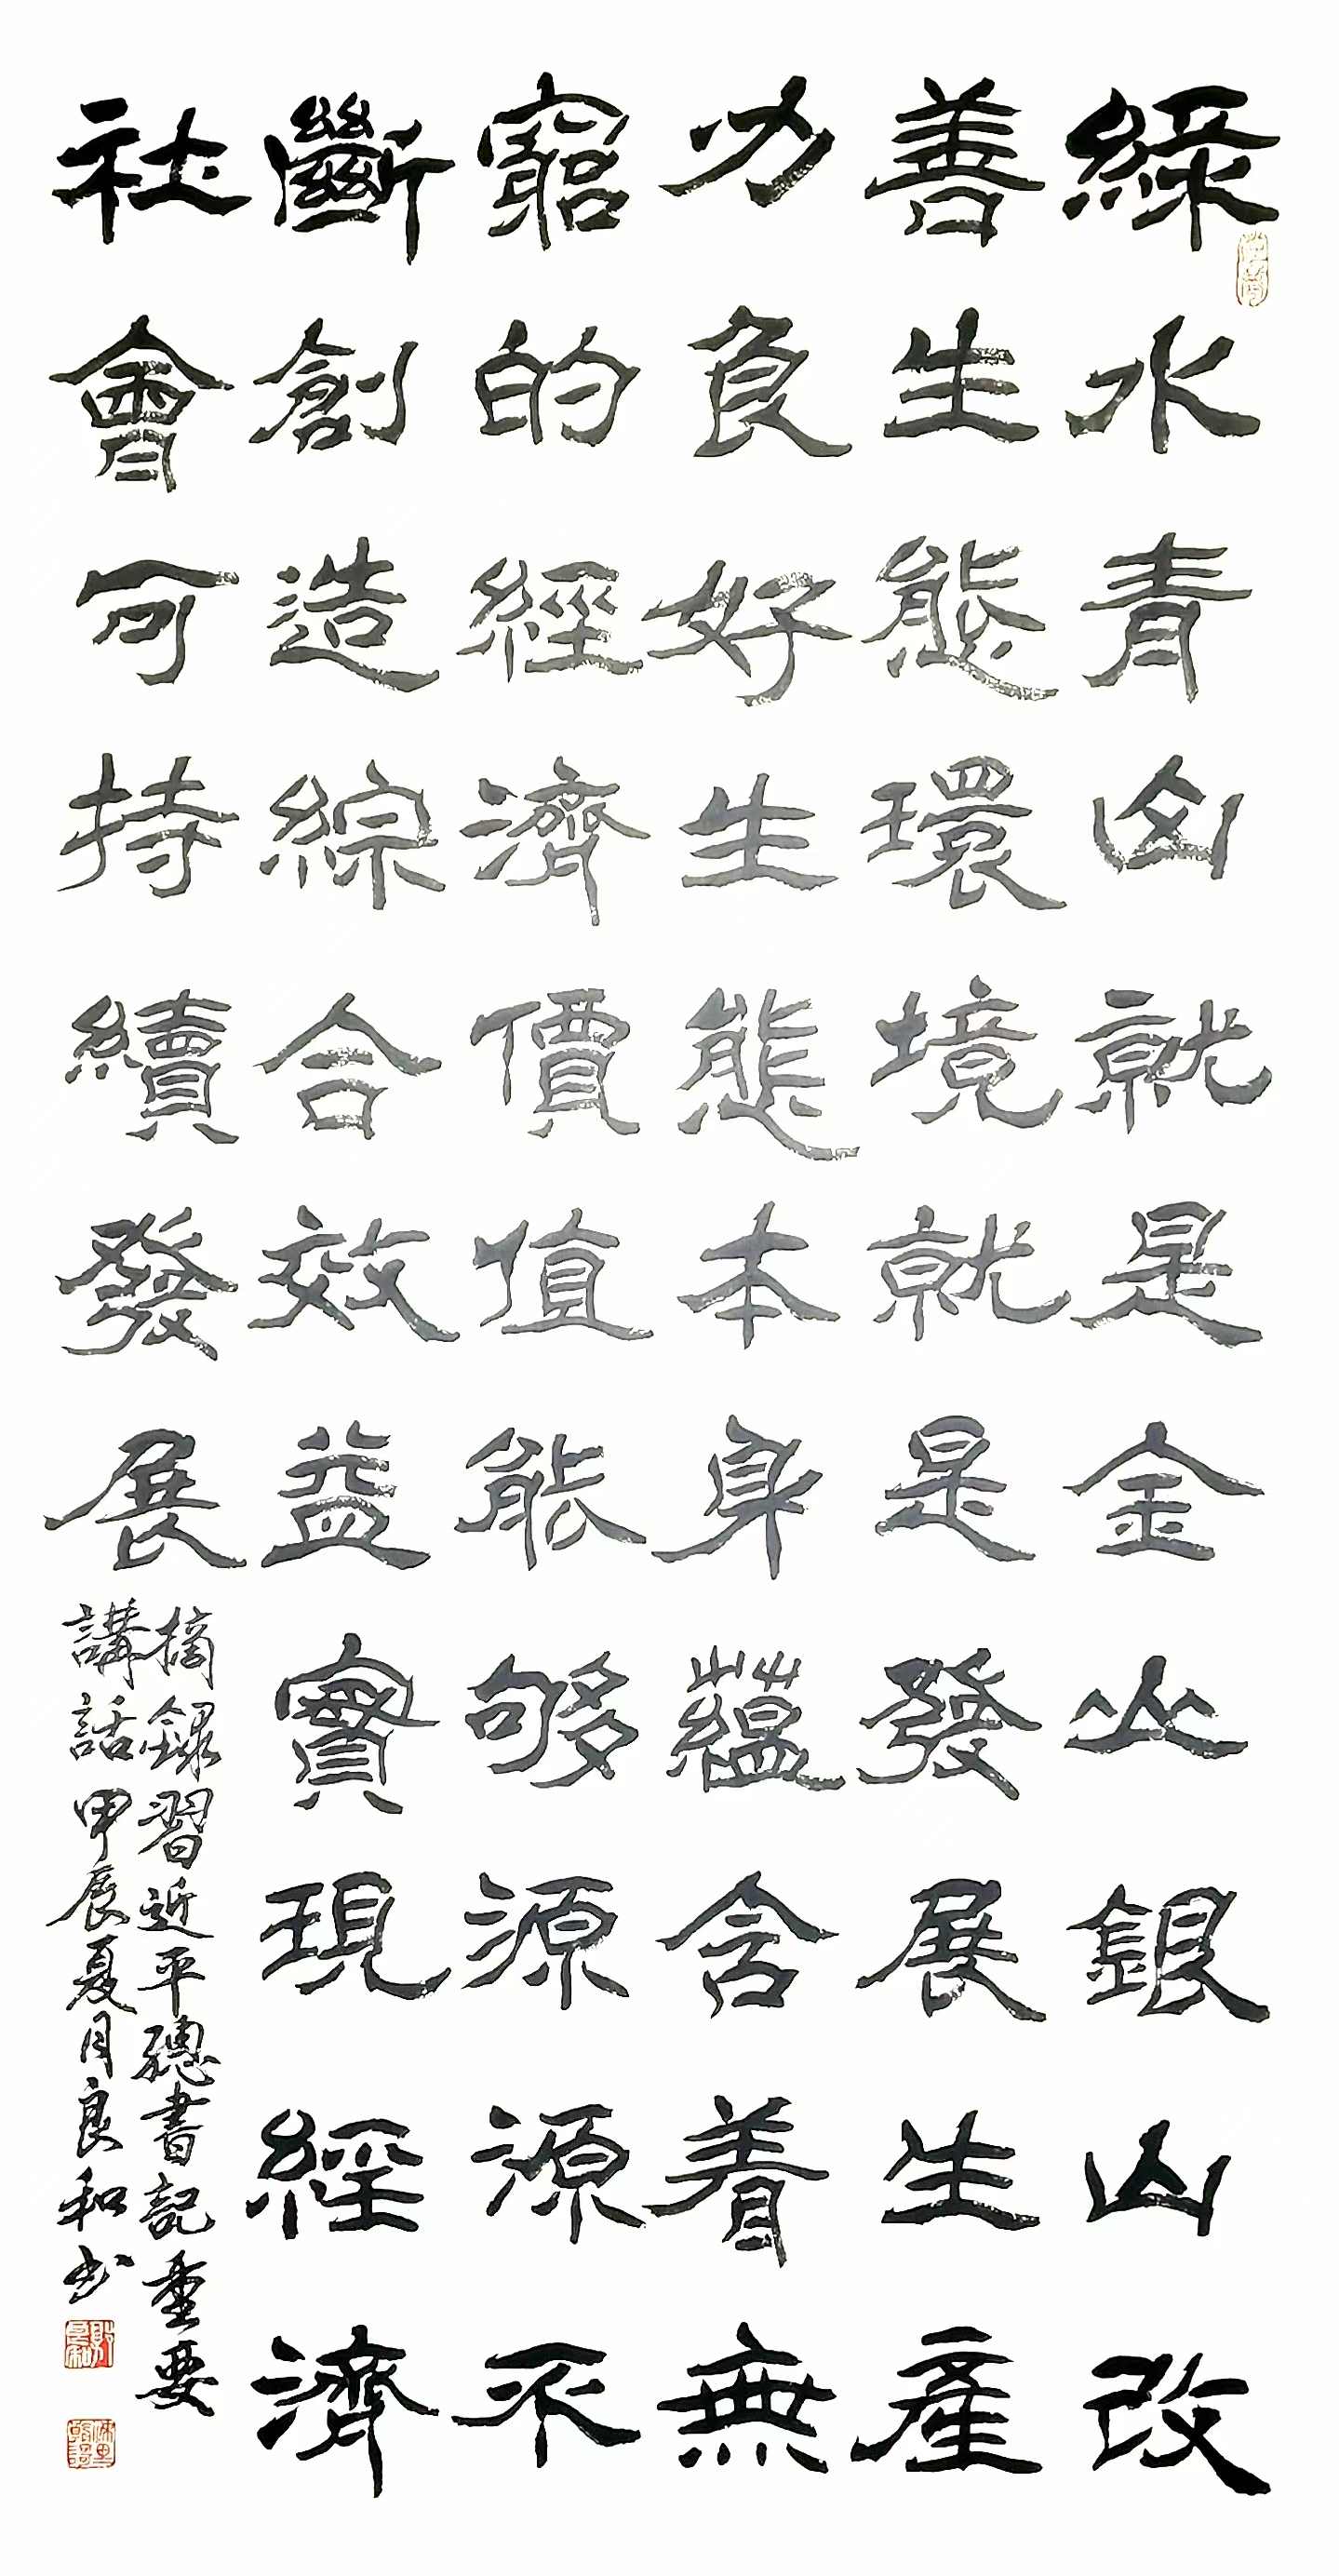 綠水青山就是金山銀山改
善生態環境就是發展生產
力良好生態本身蘊含着無
窮的經濟價值能够源源不
斷創造綜合效益實現經濟
社會可持續發展
摘録習近平總書記重要
講話甲辰夏月良和书